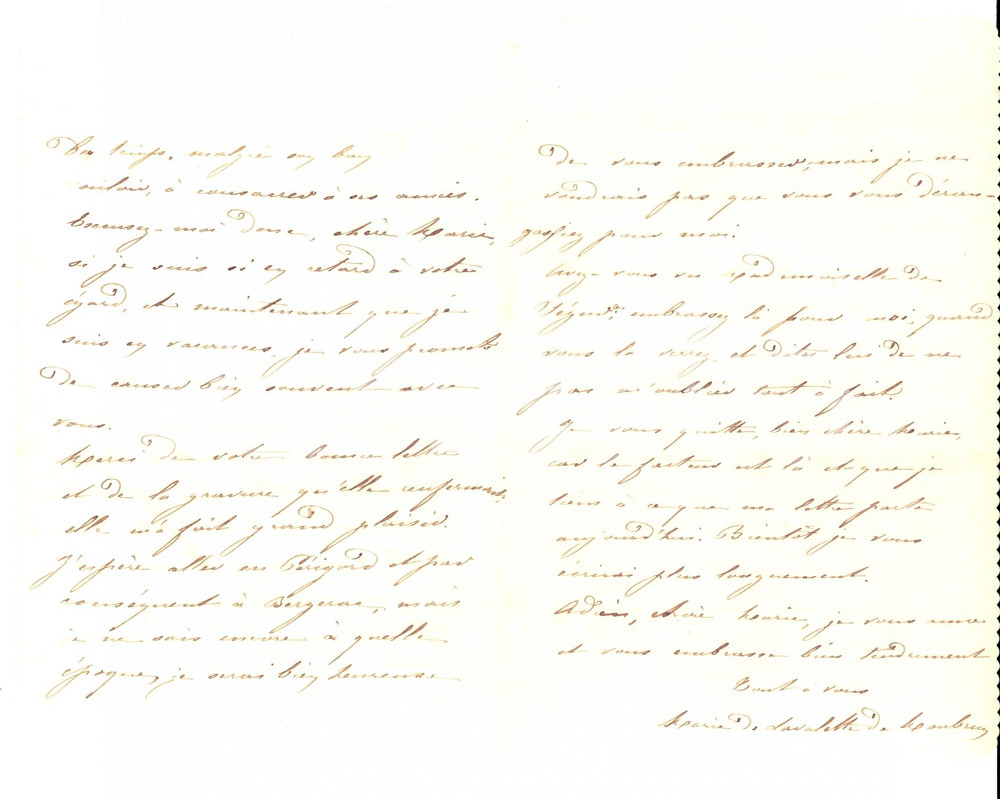 du temps, malgré son bon
vouloir, à consacrer à ses amies.
Excusez-moi donc, chère Marie,
si je suis si en retard à votre
égard, et maintenant que je
suis en vacances, je vous promets
de causer bien souvent avec
vous.
Merci de votre bonne lettre
et de la gravure qu'elle renfermait;
elle m'a fait grand plaisir.
J'espère aller en Périgord et par
conséquent à Bergerac, mais
je ne sais encore à quelle
époque, je serais bien heureuse
de vous embrasser, mais je ne
voudrais pas que vous vous déran-
geassiez pour moi.
Avez-vous vu Mademoiselle de
embrassez la pour moi, quand
vous la verrez et dites lui de ne
pas m'oublier tout à fait.
Je vous quitte, bien chère Marie,
car le facteur est là et que je
tiens à ce que ma lettre parte
aujourd'hui. Bientôt je vous
écrirai plus longuement.
Adieu, chère Marie, je vous aime
et vous embrasse bien tendrement
Tout à vous
Marie de Lavalette de Monbrun